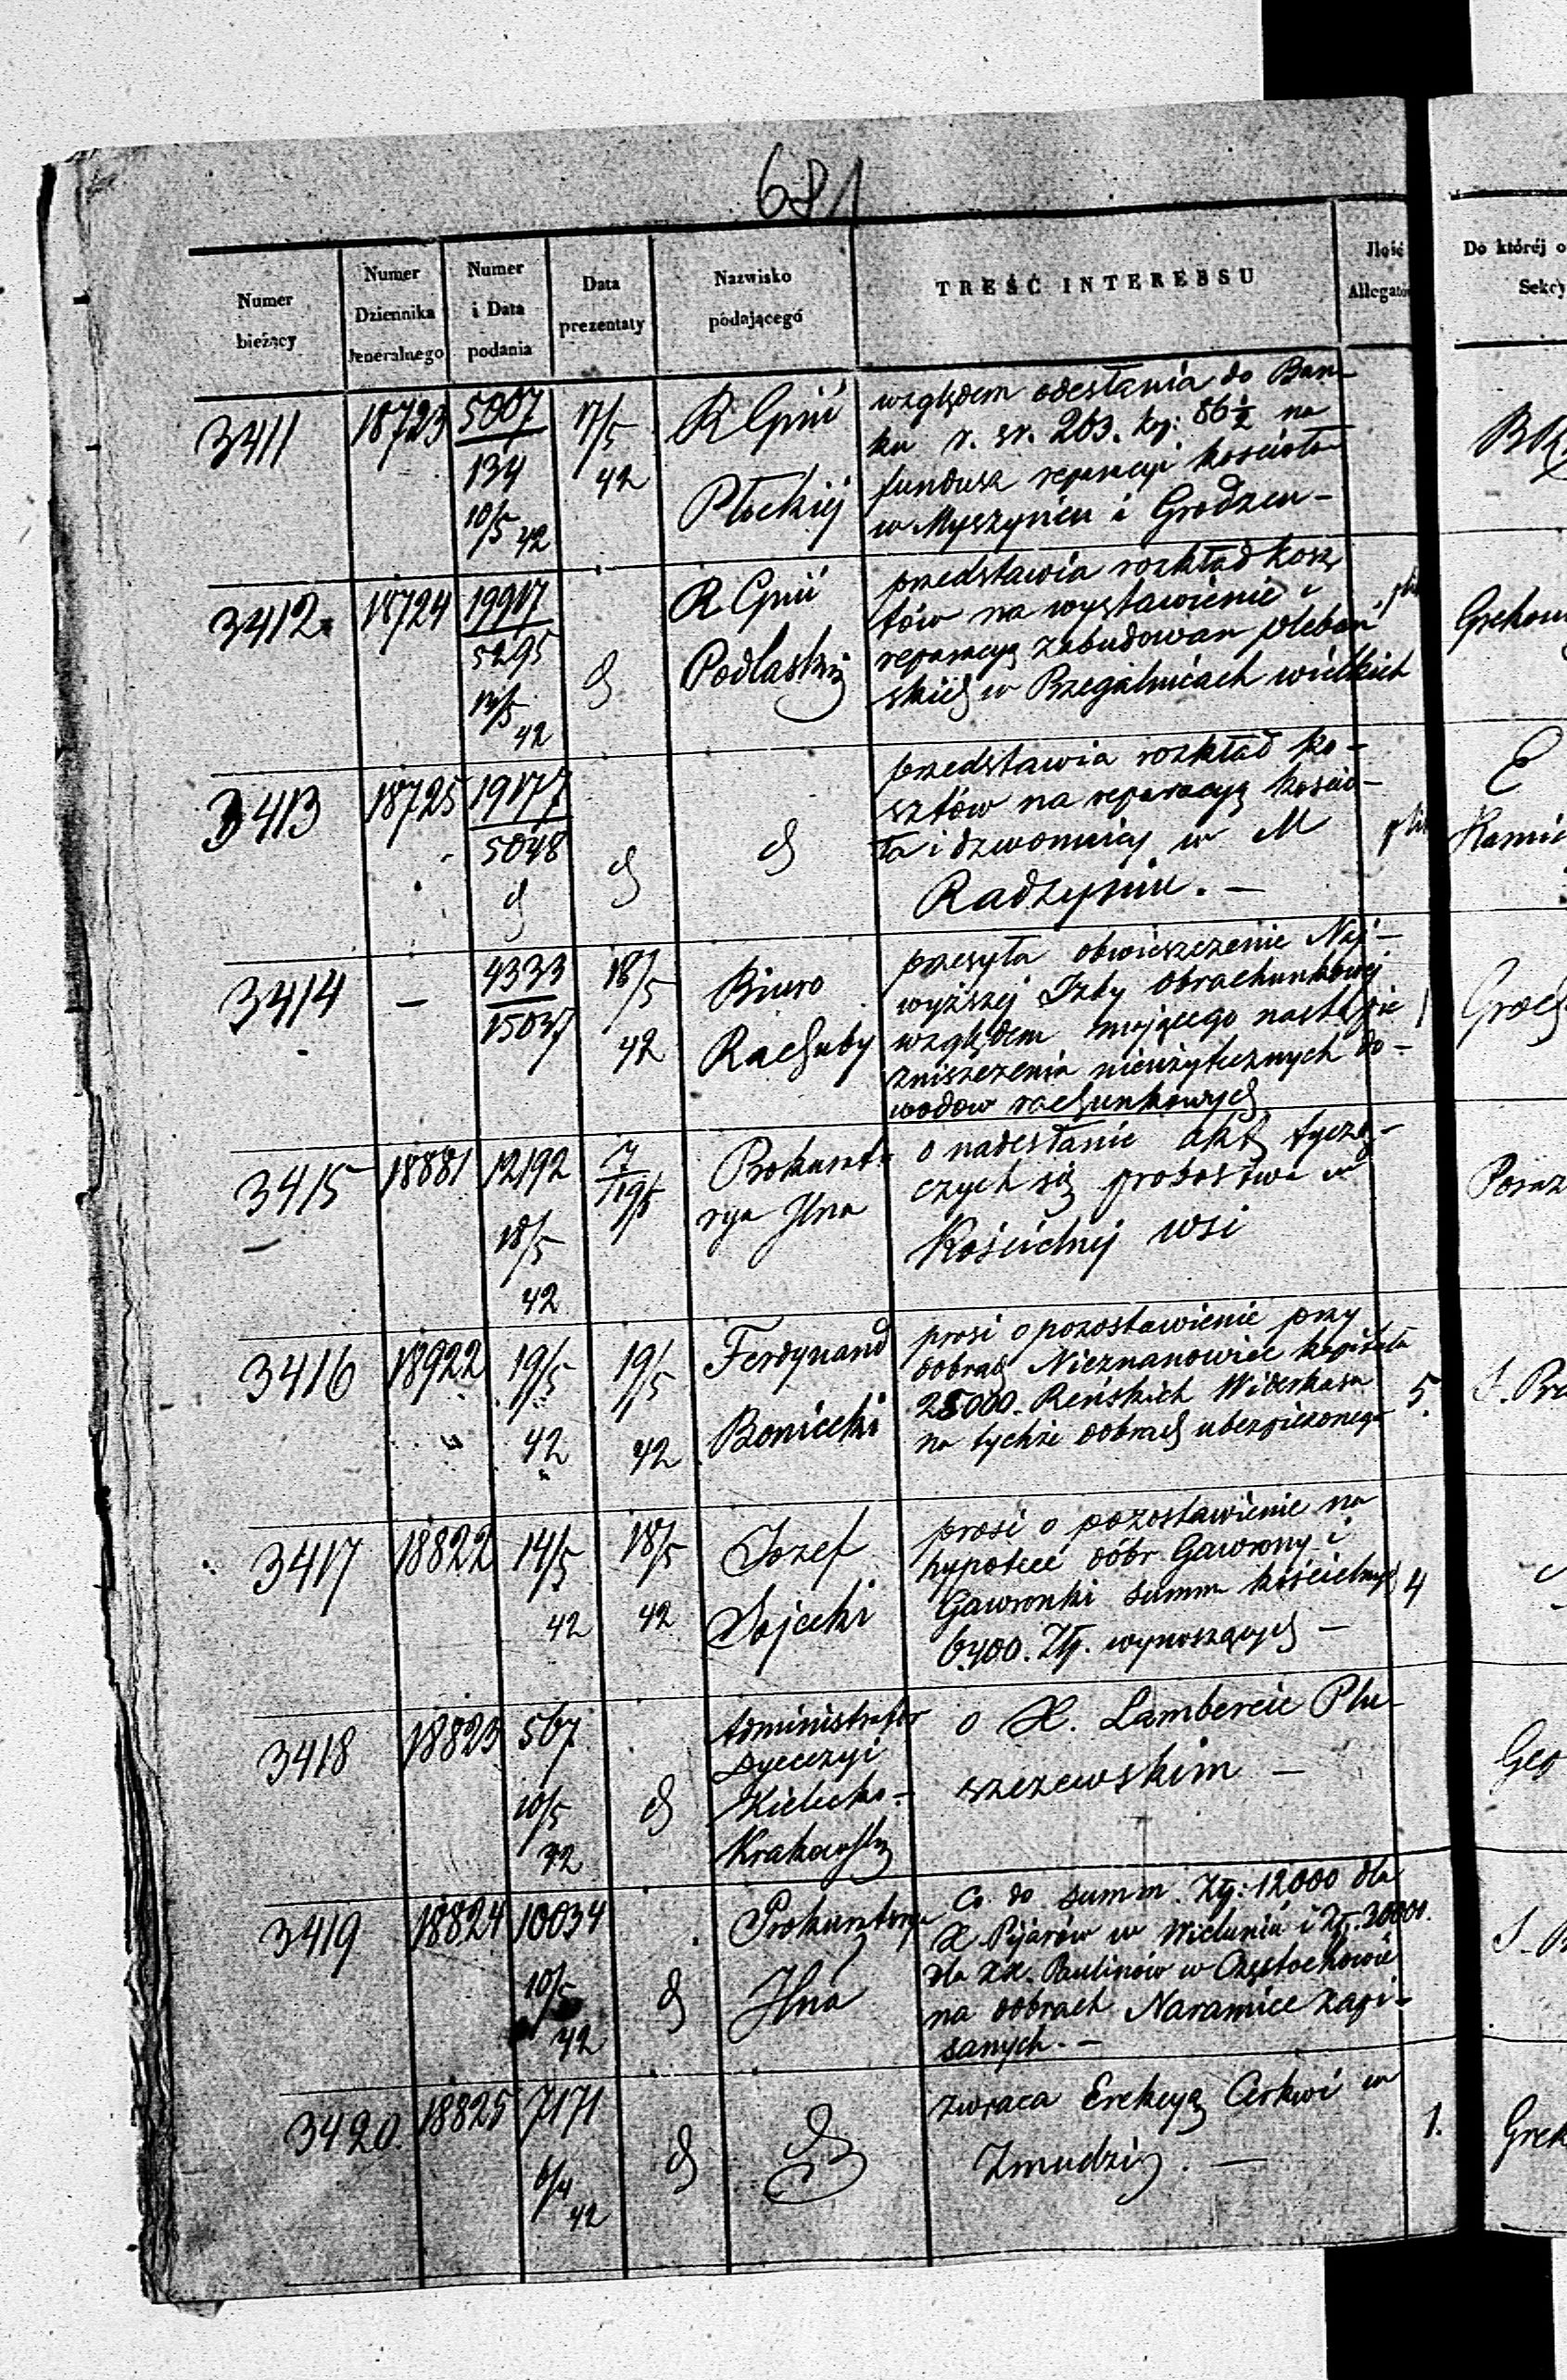 681
Numer bieżący
Numer Dziennika Jeneralnego
Numer i Data podania
Data prezentaty
Nazwisko podającego
TREŚĆ INTERESSU
Ilość Allegatów
Do któréj o
Sekcy
3411
18723
5007
134
10/5 42
17/5 42
R Gpnii
Płockiéj
względem odesłania do Ban-
ku r. sr. 263. kp: 86½ na
fundusz reperacyi kościoła
w Myszyńcu i Grodzcu -
3412
18724
19917
5295
42
R Gpnii
Podlaskiej
przedstawia rozkład kosz
tów na wystawienie i
reperacyą zabudowań pleban
skich w wielkich
Grekow
3413
18725
19177
5048
d
d
d
przedstawia rozkład ko-
sztów na reperacyą kościo-
ła i dzwonnicy w M
Radzyniu. -
E
Kamie
3414
-
4333
15037
18/5 42
Biuro
Rachuby
przesyła obwieszczenie Naj-
wyższej Izby Obrachunkowej
względem mającego nastąpić
zniszczenia nieużytecznych do-
wodow rachunkowych
1
Groch
3415
18881
12192
18/5 42
7/19/5
Prokurato
rya Jlna
o nadesłanie akt tyczą-
czych się probostwa w
Kościelnej wsi
3416
18922
19/5 42
19/5 42
Ferdynand
Boniecki
prosi o pozostawienie przy
dobrach Nieznanowice kapitału
25000. Reńskich Widerkasu
na tychże dobrach ubezpieczonego
5.
3417
18822
14/5 42
18/5 42
Jozef
Sojecki
prosi o pozostawienie na
hypotece dóbr Gawrony i
Gawronki summ kościelnych
6400. Złp. wynoszących -
4
3418
18823
567
10/5 42
d
Administrator
Dyecezyi
Kielecko-
Krakowskiej
o X. Lambercie Plu-
szczewskim -
3419
18824
10034
10/5 42
d
Prokuratorya
Jlna
Co do summ. Złp: 12000 dla
X Pijarów w Wieluniu i Złp: 30000.
dla XX. Paulinów w Częstochowie
na dobrach Naramice zapi-
sanych. -
3420.
18825
7171
6/4 42
d
d
zwraca Erekcyą Cerkwi w
Zmudzi. -
1.
Grek